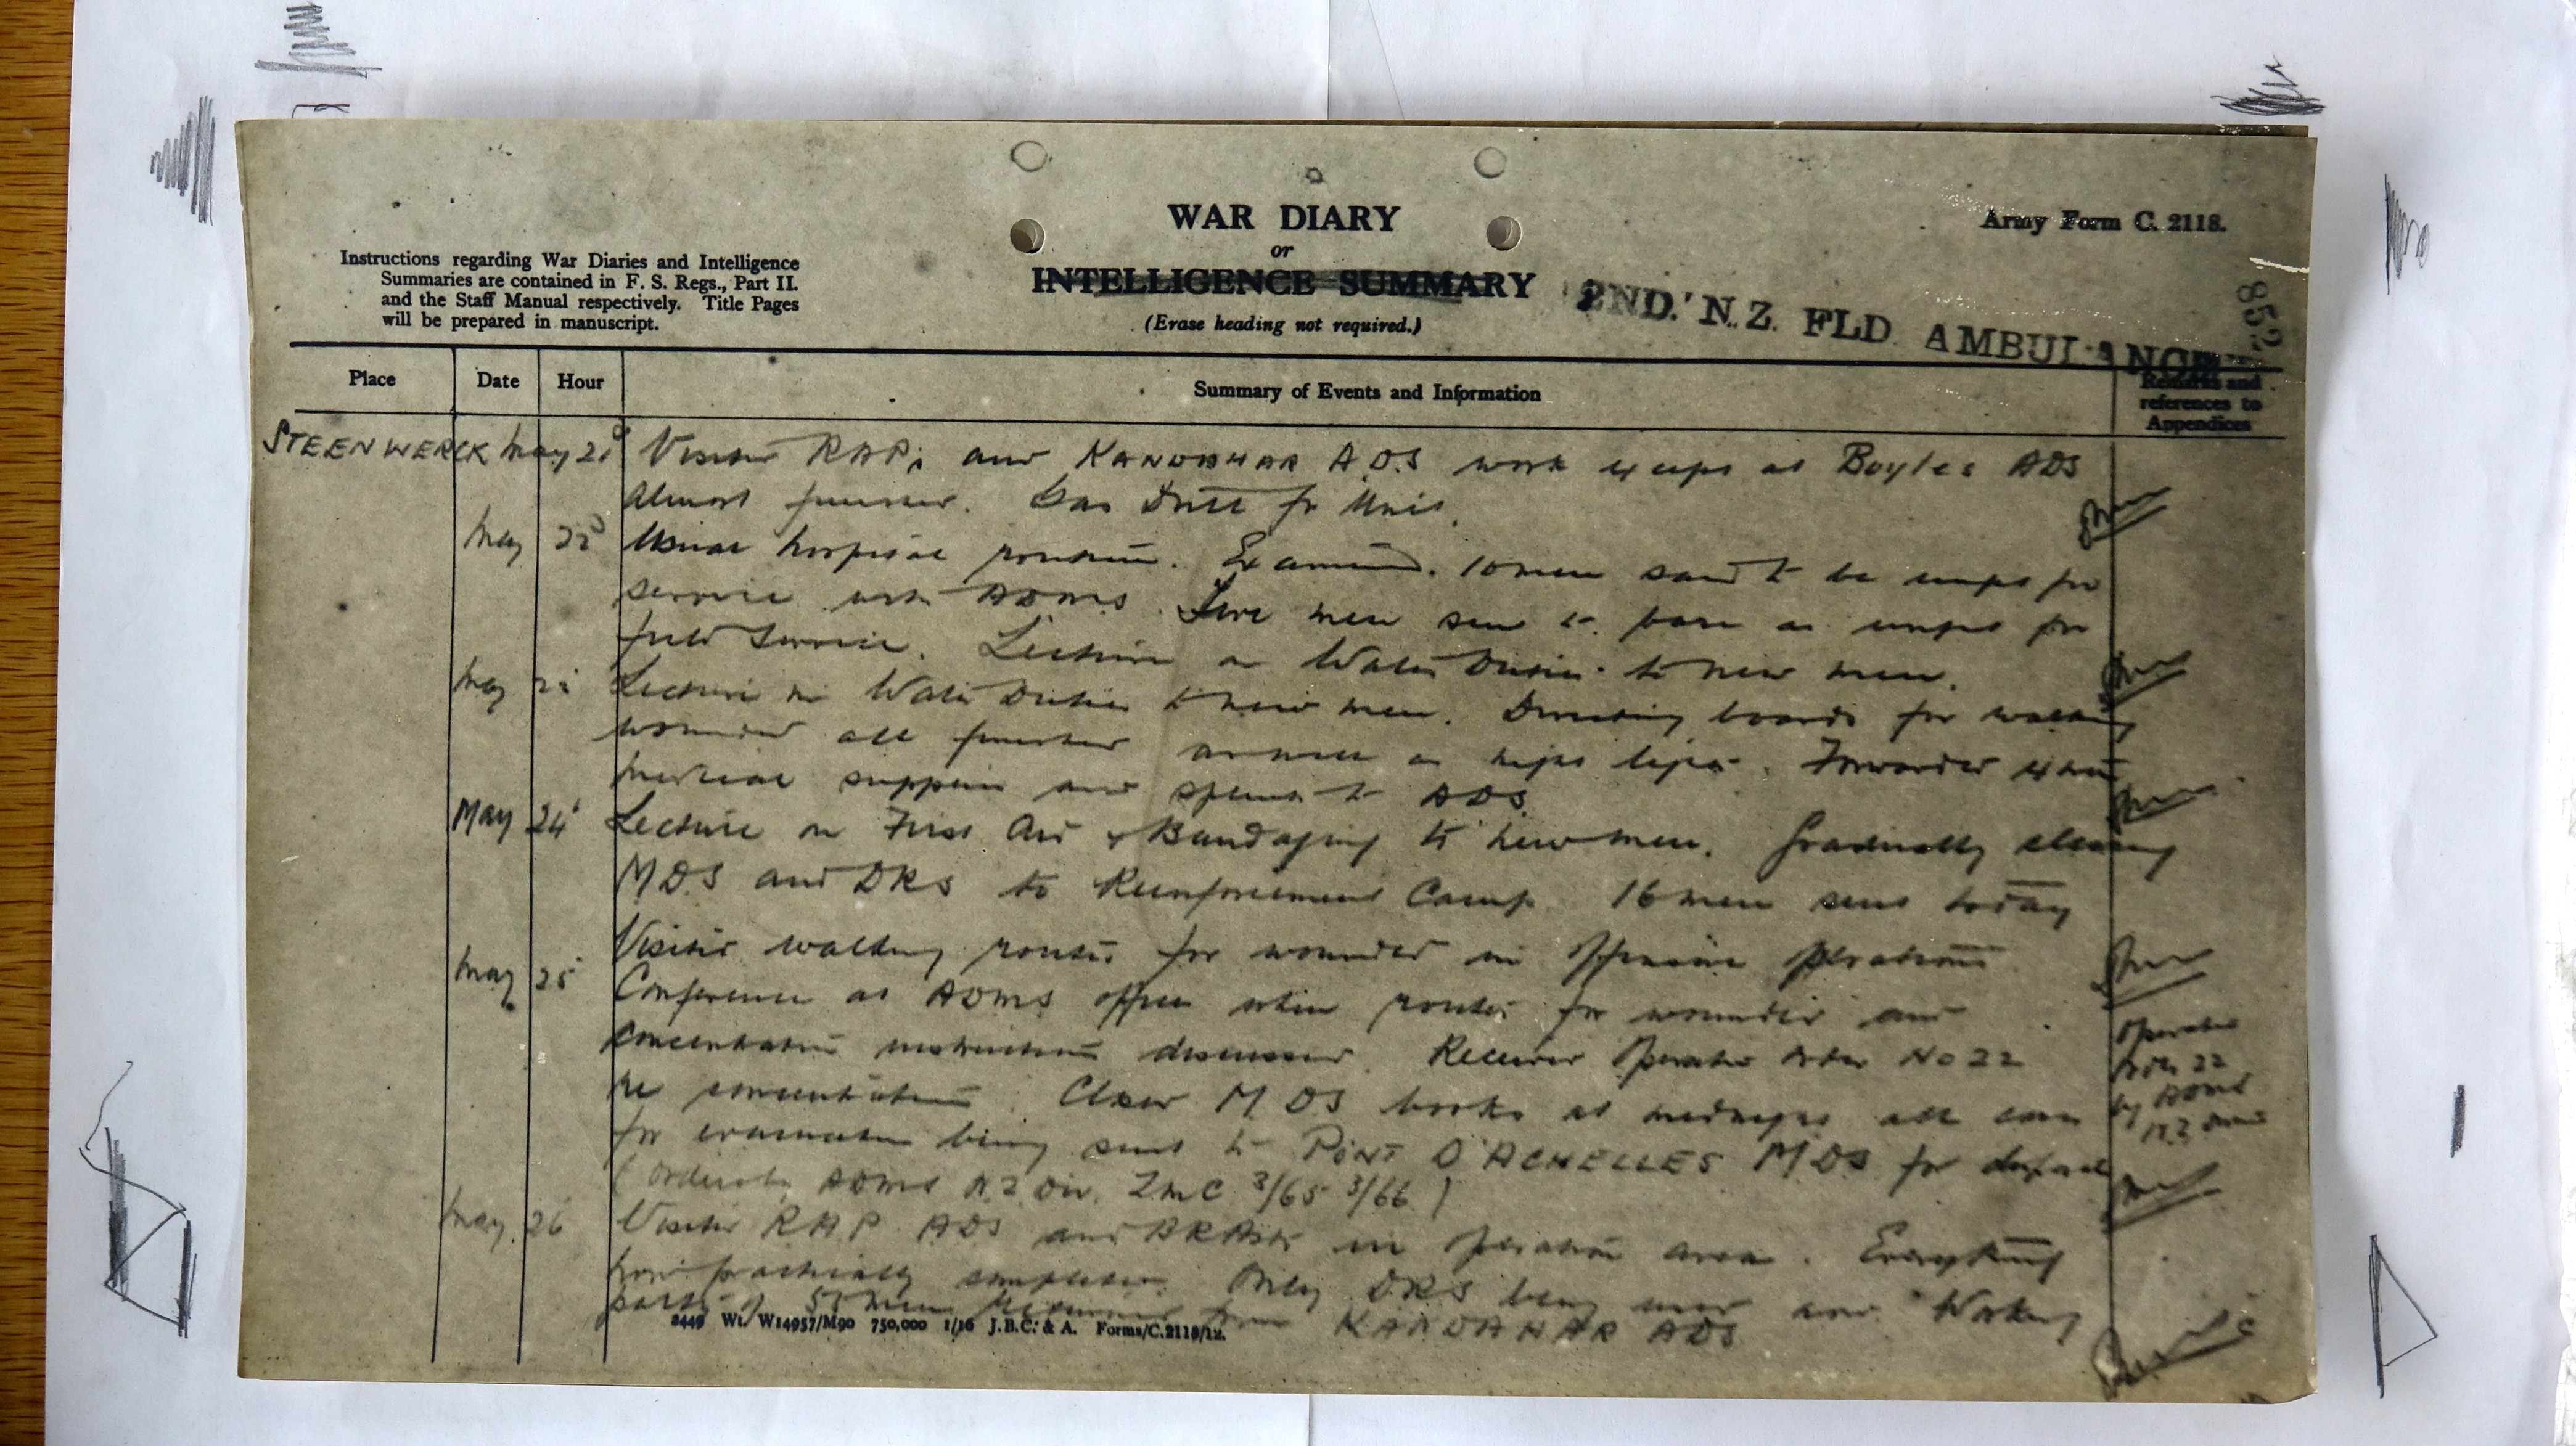 WAR DIARY
or
INTELLIGENCE SUMMARY
(Erase heading not required.)
Army Form C. 2118.
Instructions regarding War Diaries and Intelligence
Summaries are contained in F. S. Regs., Part II.
and the Staff Manual respectively. Title Pages
will be prepared in manuscript.
2ND. N.Z. FLD AMBULANCE
852
Place Date Hour Summary of Events and Information Remarks and references to Appendices
STEENWERCK May 21 Visited RAPs and KANDAHAR ADS work except at Boyles ADS
almost finished. Gas Drill for Unit.
May 22 Usual hospital routine. Examined 10 men said to be unfit for
service with ADMS. Five men sent to base as unfit for
field service. Lecture on Water Duties to new men.
May Lecture on Water Duties to new men. Directing boards for walking
wounded all finished as night lights. Forwarded
medical supplies and to ADS
May 24 Lecture on First Aid & Bandaging to new men. Gradually clearing
MDS and DRS to Reinforcement Camp 16 men sent today
Visited walking routes for wounded in offensive operations
May 25 Conference at ADMS office when routes for wounded and
concentration instructions discussed. Received Operation Order No 22
re concentration. Closed MDS books at midnight all cases
for evacuation being sent to PONT D'ACHELLES MDS for disposal
(Orders by ADMS NZ Div. ZMC 3/65 3/66)
Operation
Order 22
by ADMS
N.Z.
May 26 Visited RAP ADS and in operation area. Everything
now practically completed. Only DRS being used now. Working
party of men returned from KANDAHAR ADS
2449 Wt. W14957/M90 750,000 1/16 J.B.C. & A. Forms/C.2118/12.